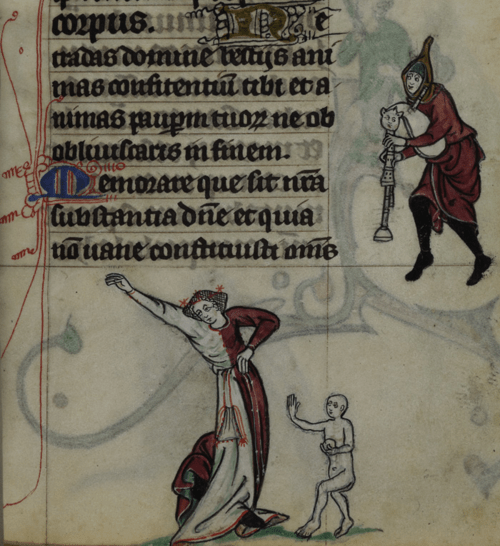 corpus. Ne
tradas domine bestijs ani
mas confitentiū tibi et a
nimas paupm̄ tuoꝝ ne ob
obliuiscaris in finem.
Memorare que sit nr̄a
substantia dn̄e et quia
nō uane constituisti om̄s